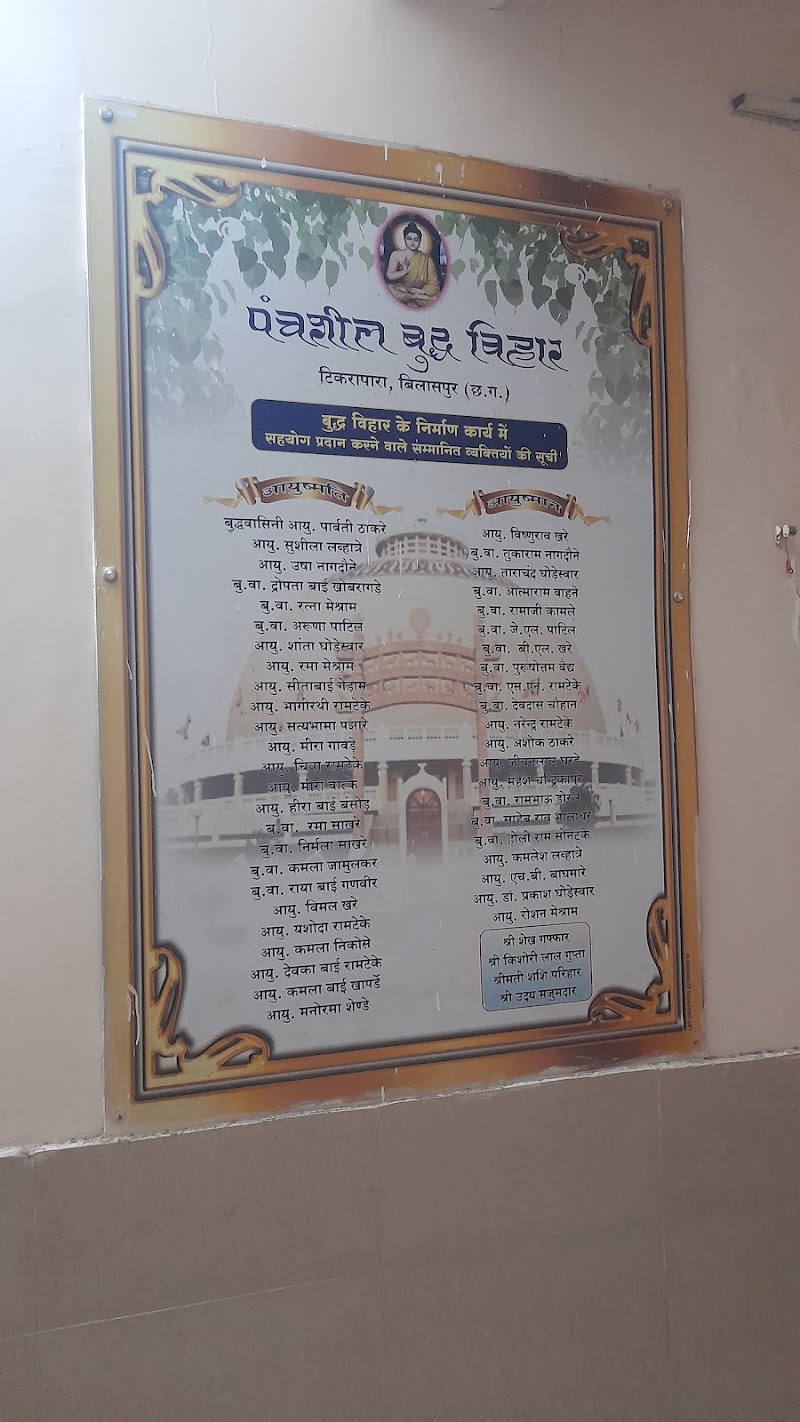 पंचशील बुद्ध विहार
टिकरापारा, बिलासपुर (छ.ग.)
बुद्ध विहार के निर्माण कार्य में
सहयोग प्रदान करने वाले सम्मानित व्यक्तियों की सूची
आयुष्मति
बुद्धवासिनी आयु. पार्वती ठाकरे
आयु. सुशीला लव्हात्रे
आयु. उषा नागदौने
बु.वा. द्रोपता बाई खोबरागड़े
बु.वा. रत्ना मेश्राम
बु.वा. अरूणा पाटिल
आयु. शांता घोड़ेस्वार
आयु. रमा मेश्राम
आयु. सीताबाई गेड़ाम
आयु. भागीरथी रामटेके
आयु. सत्यभामा पझारे
आयु. मीरा गावड़े
आयु. चित्रा रामटेके
आयु. मीरा वाल्के
आयु. हीरा बाई बंसोड़
बु.वा. रमा साखरे
बु.वा. निर्मला साखरे
बु.वा. कमला जामुलकर
बु.वा. राया बाई गणवीर
आयु. विमल खरे
आयु. यशोदा रामटेके
आयु. कमला निकोसे
आयु. देवका बाई रामटेके
आयु. कमला बाई खापर्डे
आयु. मनोरमा शेण्डे
आयुष्मान
आयु. विष्णुराव खरे
बु.वा. तुकाराम नागदौने
आयु. ताराचंद घोड़ेस्वार
बु.वा. आत्माराम वाहने
बु.वा. रामाजी कामले
बु.वा. जे.एल. पाटिल
बु.वा. बी.एल. खरे
बु.वा. पुरूषोत्तम वेद्य
बु.वा. एस.एन. रामटेके
बु.वा. देवदास चौहान
आयु. नरेन्द्र रामटेके
आयु. अशोक ठाकरे
आयु. जीवनलाल घरडे
आयु. महेश चन्द्रिकापुर
बु.वा. रामभाऊ डोंगरे
बु.वा. साहेब राव भालाधरे
बु.वा. होली राम सोनटके
आयु. कमलेश लव्हात्रे
आयु. एच.बी. बाघमारे
आयु. डा. प्रकाश घोड़ेस्वार
आयु. रोशन मेश्राम
श्री शेख गफ्फार
श्री किशोरी लाल गुप्ता
श्रीमती शशि परिहार
श्री उदय मजुमदार